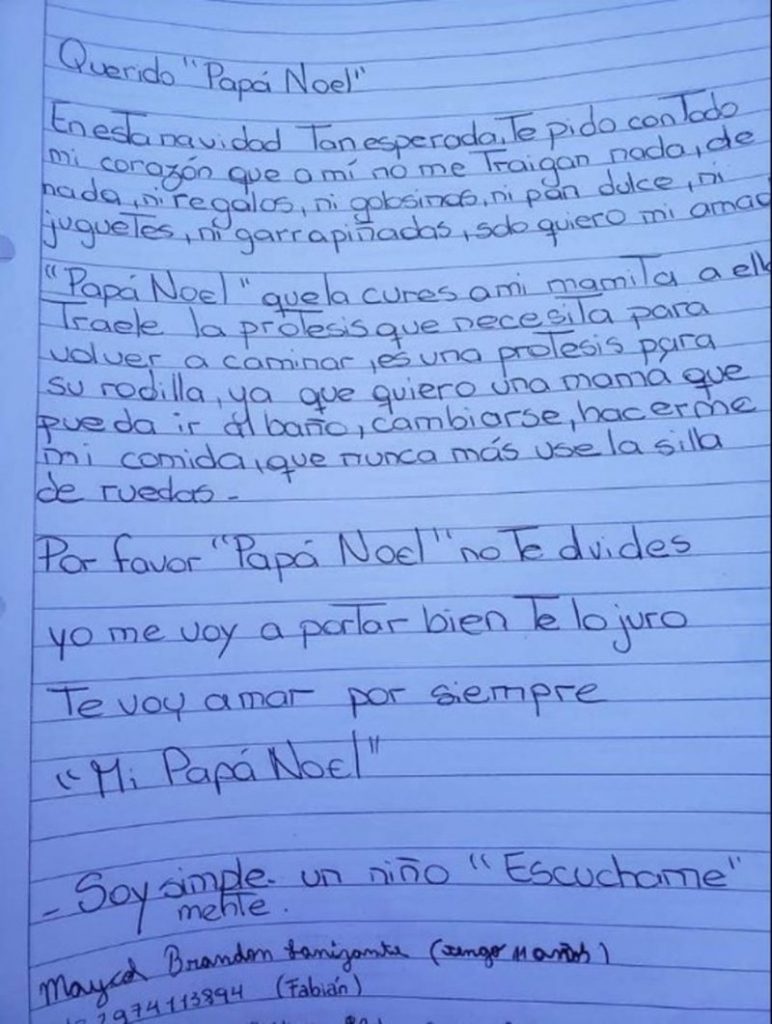 Querido "Papá Noel"
En esta navidad Tan esperada, Te pido con Todo
mi corazón que a mí no me Traigan nada, de
nada, ni regalos, ni golosinas, ni pan dulce, ni
juguetes, ni garrapiñadas, solo quiero mi amad
"Papá Noel" que la cures a mi mamita a ella
Traele la protesis que necesita para
volver a caminar, es una protesis para
su rodilla, ya que quiero una mamá que
pueda ir al baño, cambiarse, hacerme
mi comida, que nunca más use la silla
de ruedas -
Por favor "Papá Noel" no Te olvides
yo me voy a portar bien Te lo juro
Te voy amar por siempre
"Mi Papá Noel"
- Soy simple- un niño "Escuchame"
mente.
Maycol Brandon (tengo 11 años)
2974113894 (Fabián)